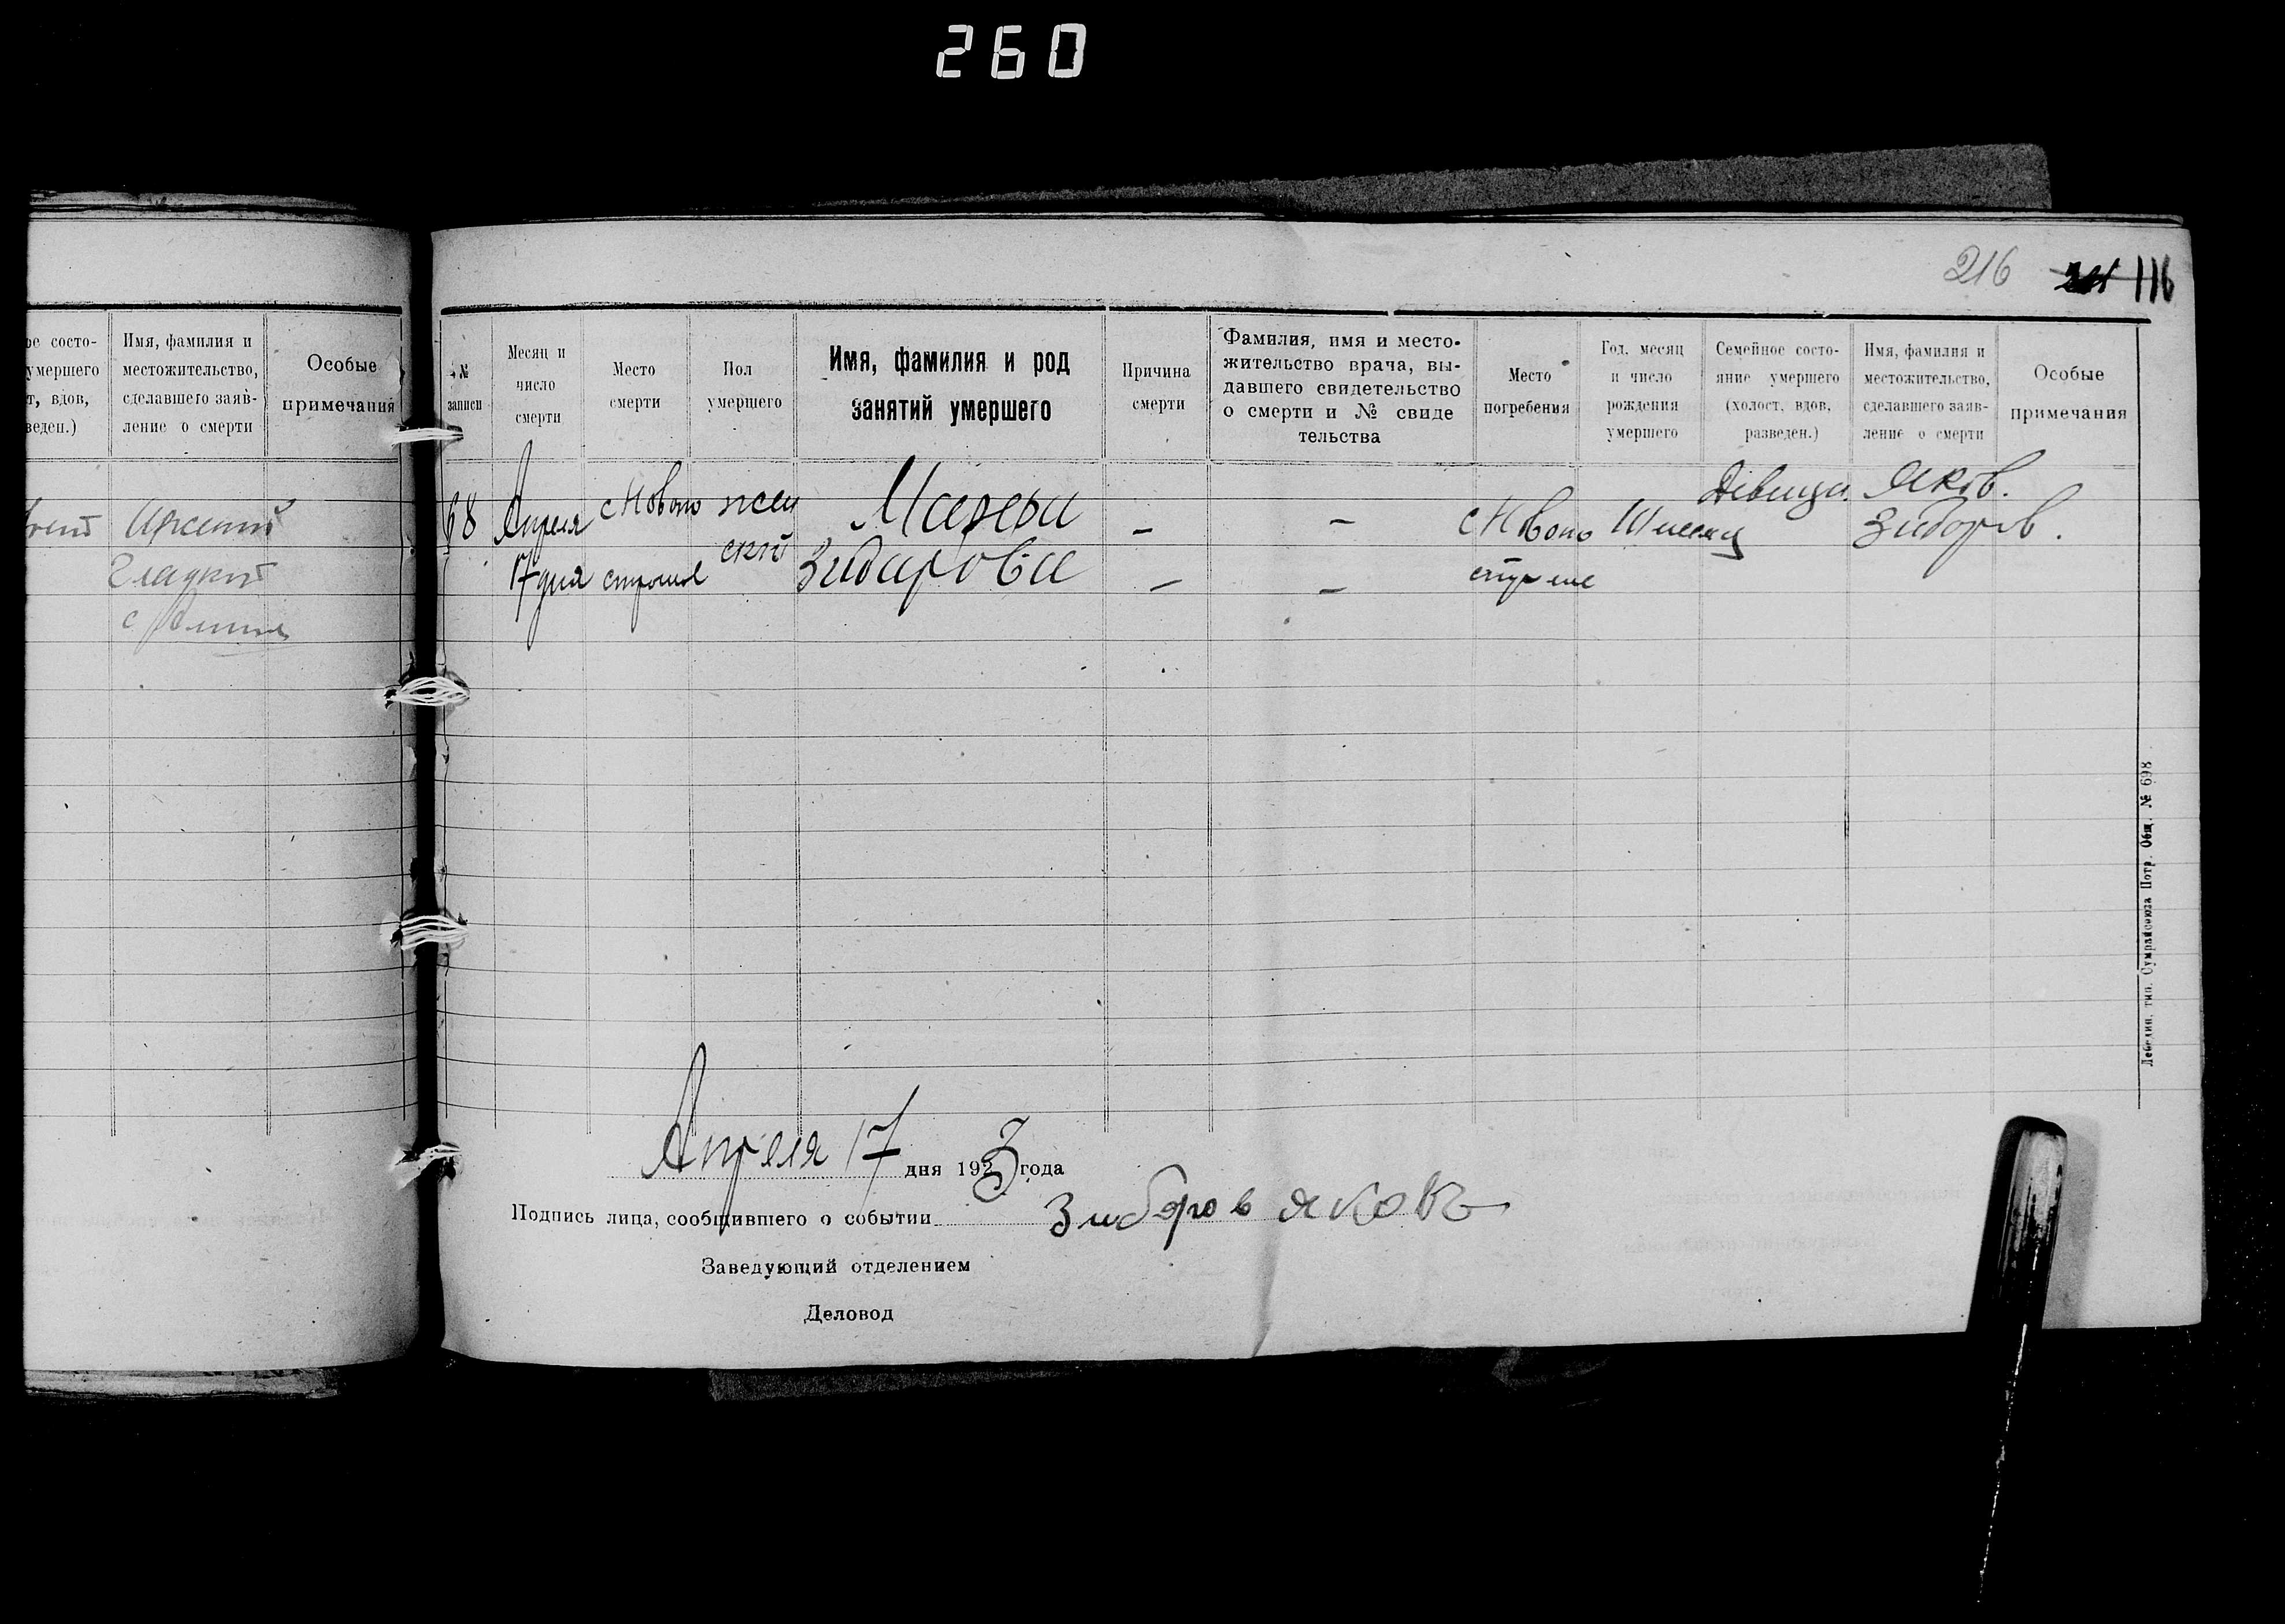 260
216 116
ое состо-
умершего
т, вдов,
веден.)
Имя, фамилия и
местожительство,
сделавшего заяв-
ление о смерти
Особые
примечания
Арсений
Гладкий
с
№
записи
Месяц и
число
смерти
Место
смерти
Пол
умершего
Имя, фамилия и род
занятий умершего
Причина
смерти
Фамилия, имя и место-
жительство врача, вы-
давшего свидетельство
о смерти и № свиде
тельства
Место
погребения
Год, месяц
и число
рождения
умершего
Семейное состо-
яние умершего
(холост, вдов,
разведен.)
Имя, фамилия и
местожительство,
сделавшего заяв-
ление о смерти
Особые
примечания
68 Апреля с Ново жен — — с Ново Девица. Яков.
17 дня ский Зибарова — — Зиборов.
Лебедин. тип. Сумрайсоюза Потр. Общ. № 698
Апреля 17 дня 1923 года
Подпись лица, сообщившего о событии Зиборов Яковъ
Заведующий отделением
Деловод